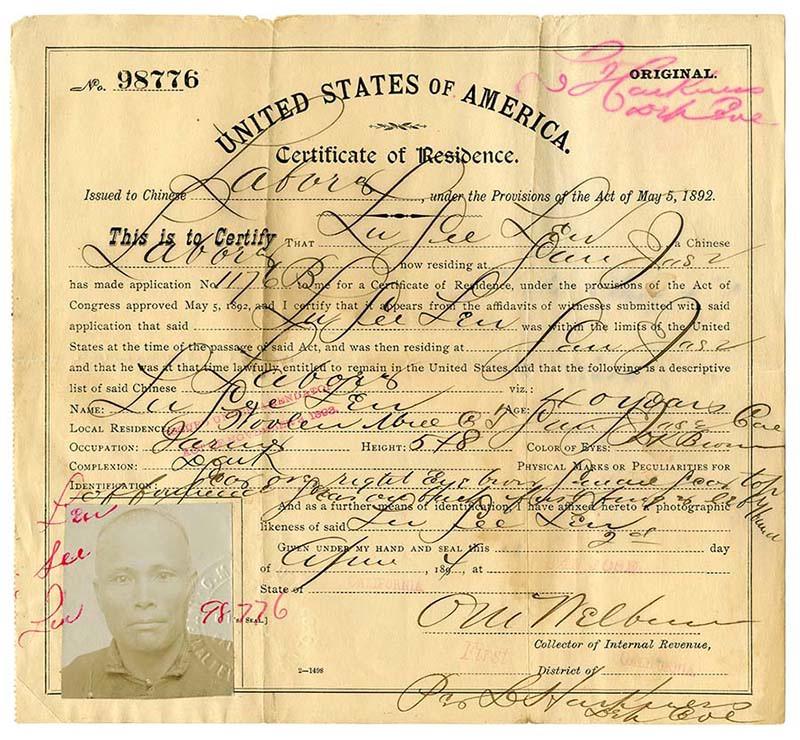 No. 98776
ORIGINAL.
UNITED STATES OF AMERICA.
Certificate of Residence.
Issued to Chinese Laborer, under the Provisions of the Act of May 5, 1892.
This is to Certify THAT Lu See Len, a Chinese
Laborer now residing at San Jose
has made application No. 1176 B to me for a Certificate of Residence, under the provisions of the Act of
Congress approved May 5, 1892, and I certify that it appears from the affidavits of witnesses submitted with said
application that said Lu See Len was within the limits of the United
States at the time of the passage of said Act, and was then residing at San Jose
and that he was at that time lawfully entitled to remain in the United States, and that the following is a descriptive
list of said Chinese Laborer viz.:
NAME: Lu See Len AGE: 40 years
LOCAL RESIDENCE: Woolen Mill San Jose Cal
OCCUPATION: Farmer HEIGHT: 5 4/8 COLOR OF EYES: Dk Brown
COMPLEXION: Dark PHYSICAL MARKS OR PECULIARITIES FOR
IDENTIFICATION: Scar over right Eyebrow Scar top
of forehead Scar on
And as a further means of identification, I have affixed hereto a photographic
likeness of said Lu See Len
GIVEN UNDER MY HAND AND SEAL this 2d day
of April, 1894, at
State of CALIFORNIA
Len
See
Lu
98776
SEAL.]
O M Welburn
Collector of Internal Revenue,
First District of CALIFORNIA
2—1498
Per L Harkness
Dep Col